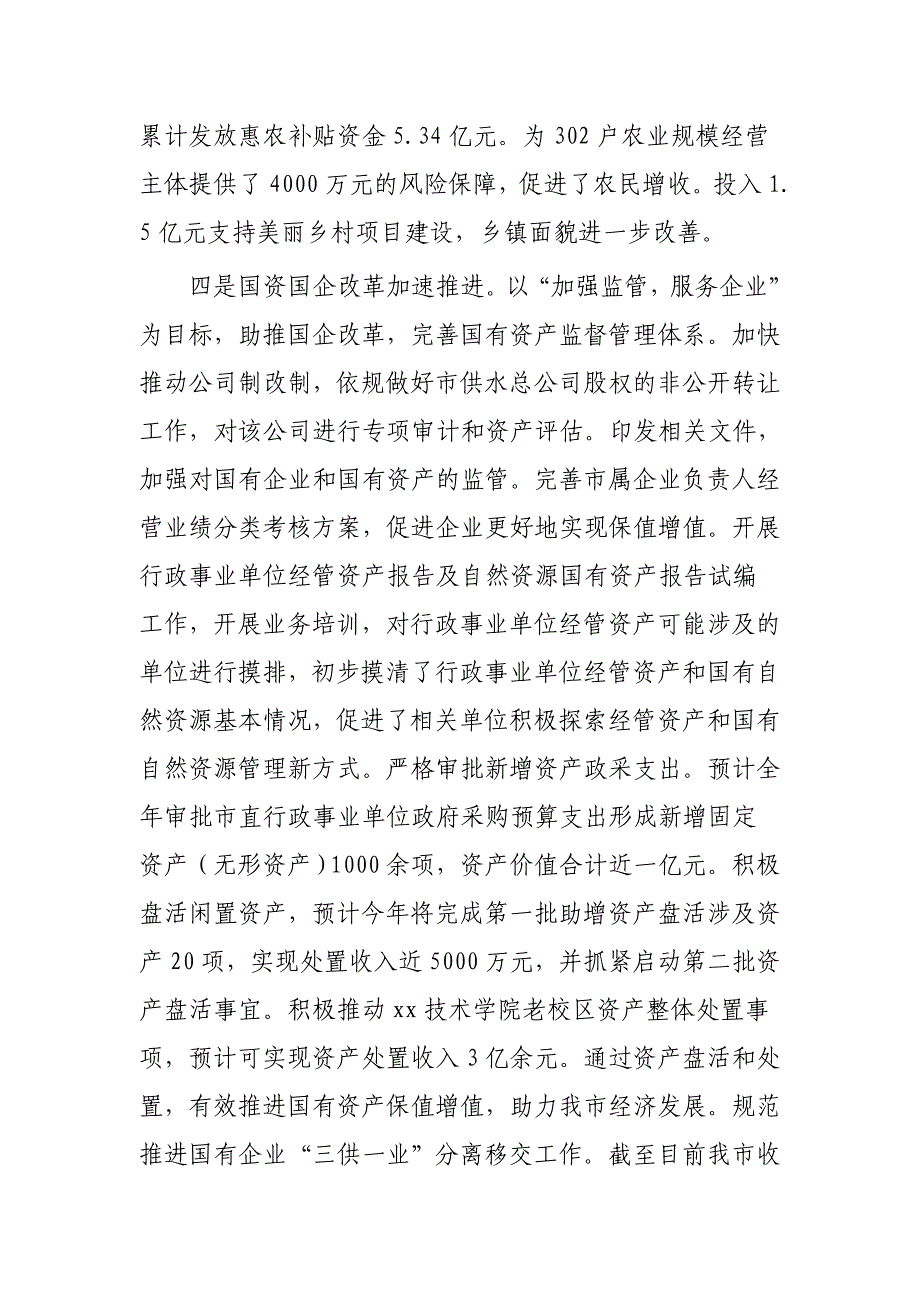 累计发放惠农补贴资金 5.34 亿元。为 302 户农业规模经营
主体提供了 4000 万元的风险保障，促进了农民增收。投入 1.
5 亿元支持美丽乡村项目建设，乡镇面貌进一步改善。
四是国资国企改革加速推进。以“加强监管，服务企业”
为目标，助推国企改革，完善国有资产监督管理体系。加快
推动公司制改制，依规做好市供水总公司股权的非公开转让
工作，对该公司进行专项审计和资产评估。印发相关文件，
加强对国有企业和国有资产的监管。完善市属企业负责人经
营业绩分类考核方案，促进企业更好地实现保值增值。开展
行政事业单位经管资产报告及自然资源国有资产报告试编
工作，开展业务培训，对行政事业单位经管资产可能涉及的
单位进行摸排，初步摸清了行政事业单位经管资产和国有自
然资源基本情况，促进了相关单位积极探索经管资产和国有
自然资源管理新方式。严格审批新增资产政采支出。预计全
年审批市直行政事业单位政府采购预算支出形成新增固定
资产（无形资产）1000 余项，资产价值合计近一亿元。积极
盘活闲置资产，预计今年将完成第一批助增资产盘活涉及资
产 20 项，实现处置收入近 5000 万元，并抓紧启动第二批资
产盘活事宜。积极推动 xx 技术学院老校区资产整体处置事
项，预计可实现资产处置收入 3 亿余元。通过资产盘活和处
置，有效推进国有资产保值增值，助力我市经济发展。规范
推进国有企业“三供一业”分离移交工作。截至目前我市收